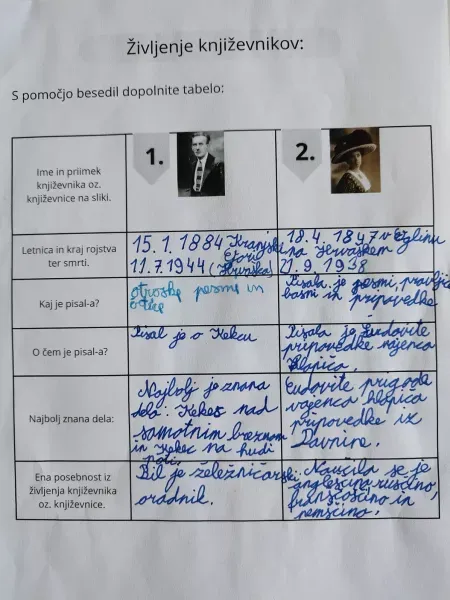 Življenje književnikov:
S pomočjo besedil dopolnite tabelo:
Ime in priimek
književnika oz.
književnice na sliki.
1.
2.
Letnica in kraj rojstva
ter smrti.
15. 1. 1884 Kranjski
11. 7. 1944 (Hrvaška)
18. 4. 1847 v Oglinu
na Hrvaškem
21. 9. 1938
Kaj je pisal-a?
otroške pesmi in
Pisala je pesmi, pravljice
basni in pripovedke
O čem je pisal-a?
Pisal je o Kekcu
Pisala je čudovite
pripovedke vajenca
Hlapića.
Najbolj znana dela:
Najbolj je znana
dela: Kekec nad
samotnim breznom
in Kekec na hudi
poti.
Čudovite prigode
vajenca hlapića
pripovedke iz
Davnine.
Ena posebnost iz
življenja književnika
oz. književnice.
Bil je železničarski
uradnik.
Naučila se je
angleščino ruščino,
franščoščino in
nemščino.